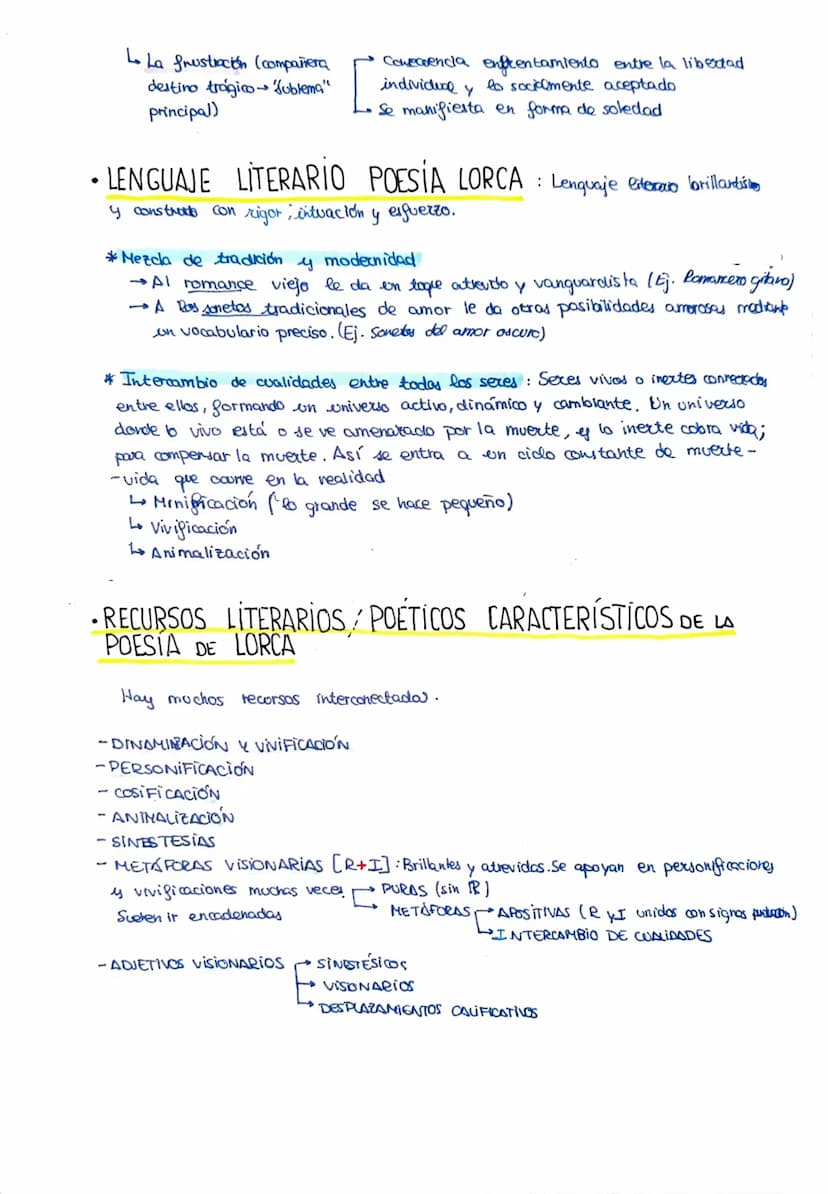 ↳ La frustración (compañera
destino trágico → "sublema"
principal)
→ Consecuencia enfrentamiento entre la libertad
individual y lo socialmente aceptado
↳ Se manifiesta en forma de soledad
• LENGUAJE LITERARIO POESÍA LORCA : Lenguaje literario brillantísimo
y construido con rigor, intuación y esfuerzo.
* Mezcla de tradición y modernidad
→ Al romance viejo le da un toque atrevido y vanguardista (Ej. Romancero gitano)
→ A los sonetos tradicionales de amor le da otras posibilidades amorosas mediante
un vocabulario preciso. (Ej. Sonetos del amor oscuro)
* Intercambio de cualidades entre todos los seres : Seres vivos o inertes conectados
entre ellos, formando un universo activo, dinámico y cambiante. Un universo
donde lo vivo está o se ve amenazado por la muerte, y lo inerte cobra vida;
para compensar la muerte. Así se entra a un ciclo constante de muerte-
-vida que ocurre en la realidad
↳ Minificación (lo grande se hace pequeño)
↳ Vivificación
↳ Animalización
• RECURSOS LITERARIOS / POÉTICOS CARACTERÍSTICOS DE LA
POESÍA DE LORCA
Hay muchos recursos interconectados.
- DINAMIZACIÓN Y VIVIFICACIÓN
- PERSONIFICACIÓN
- COSIFICACIÓN
- ANIMALIZACIÓN
- SINESTESIAS
- METÁFORAS VISIONARIAS [R+I] : Brillantes y atrevidas. Se apoyan en personificaciones
y vivificaciones muchas veces → PURAS (sin R)
Suelen ir encadenadas ↳ METÁFORAS → APOSITIVAS (R y I unidos con signos puntuación)
↳ INTERCAMBIO DE CUALIDADES
- ADJETIVOS VISIONARIOS → SINESTÉSICOS
→ VISONARIOS
↳ DESPLAZAMIENTOS CALIFICATIVOS